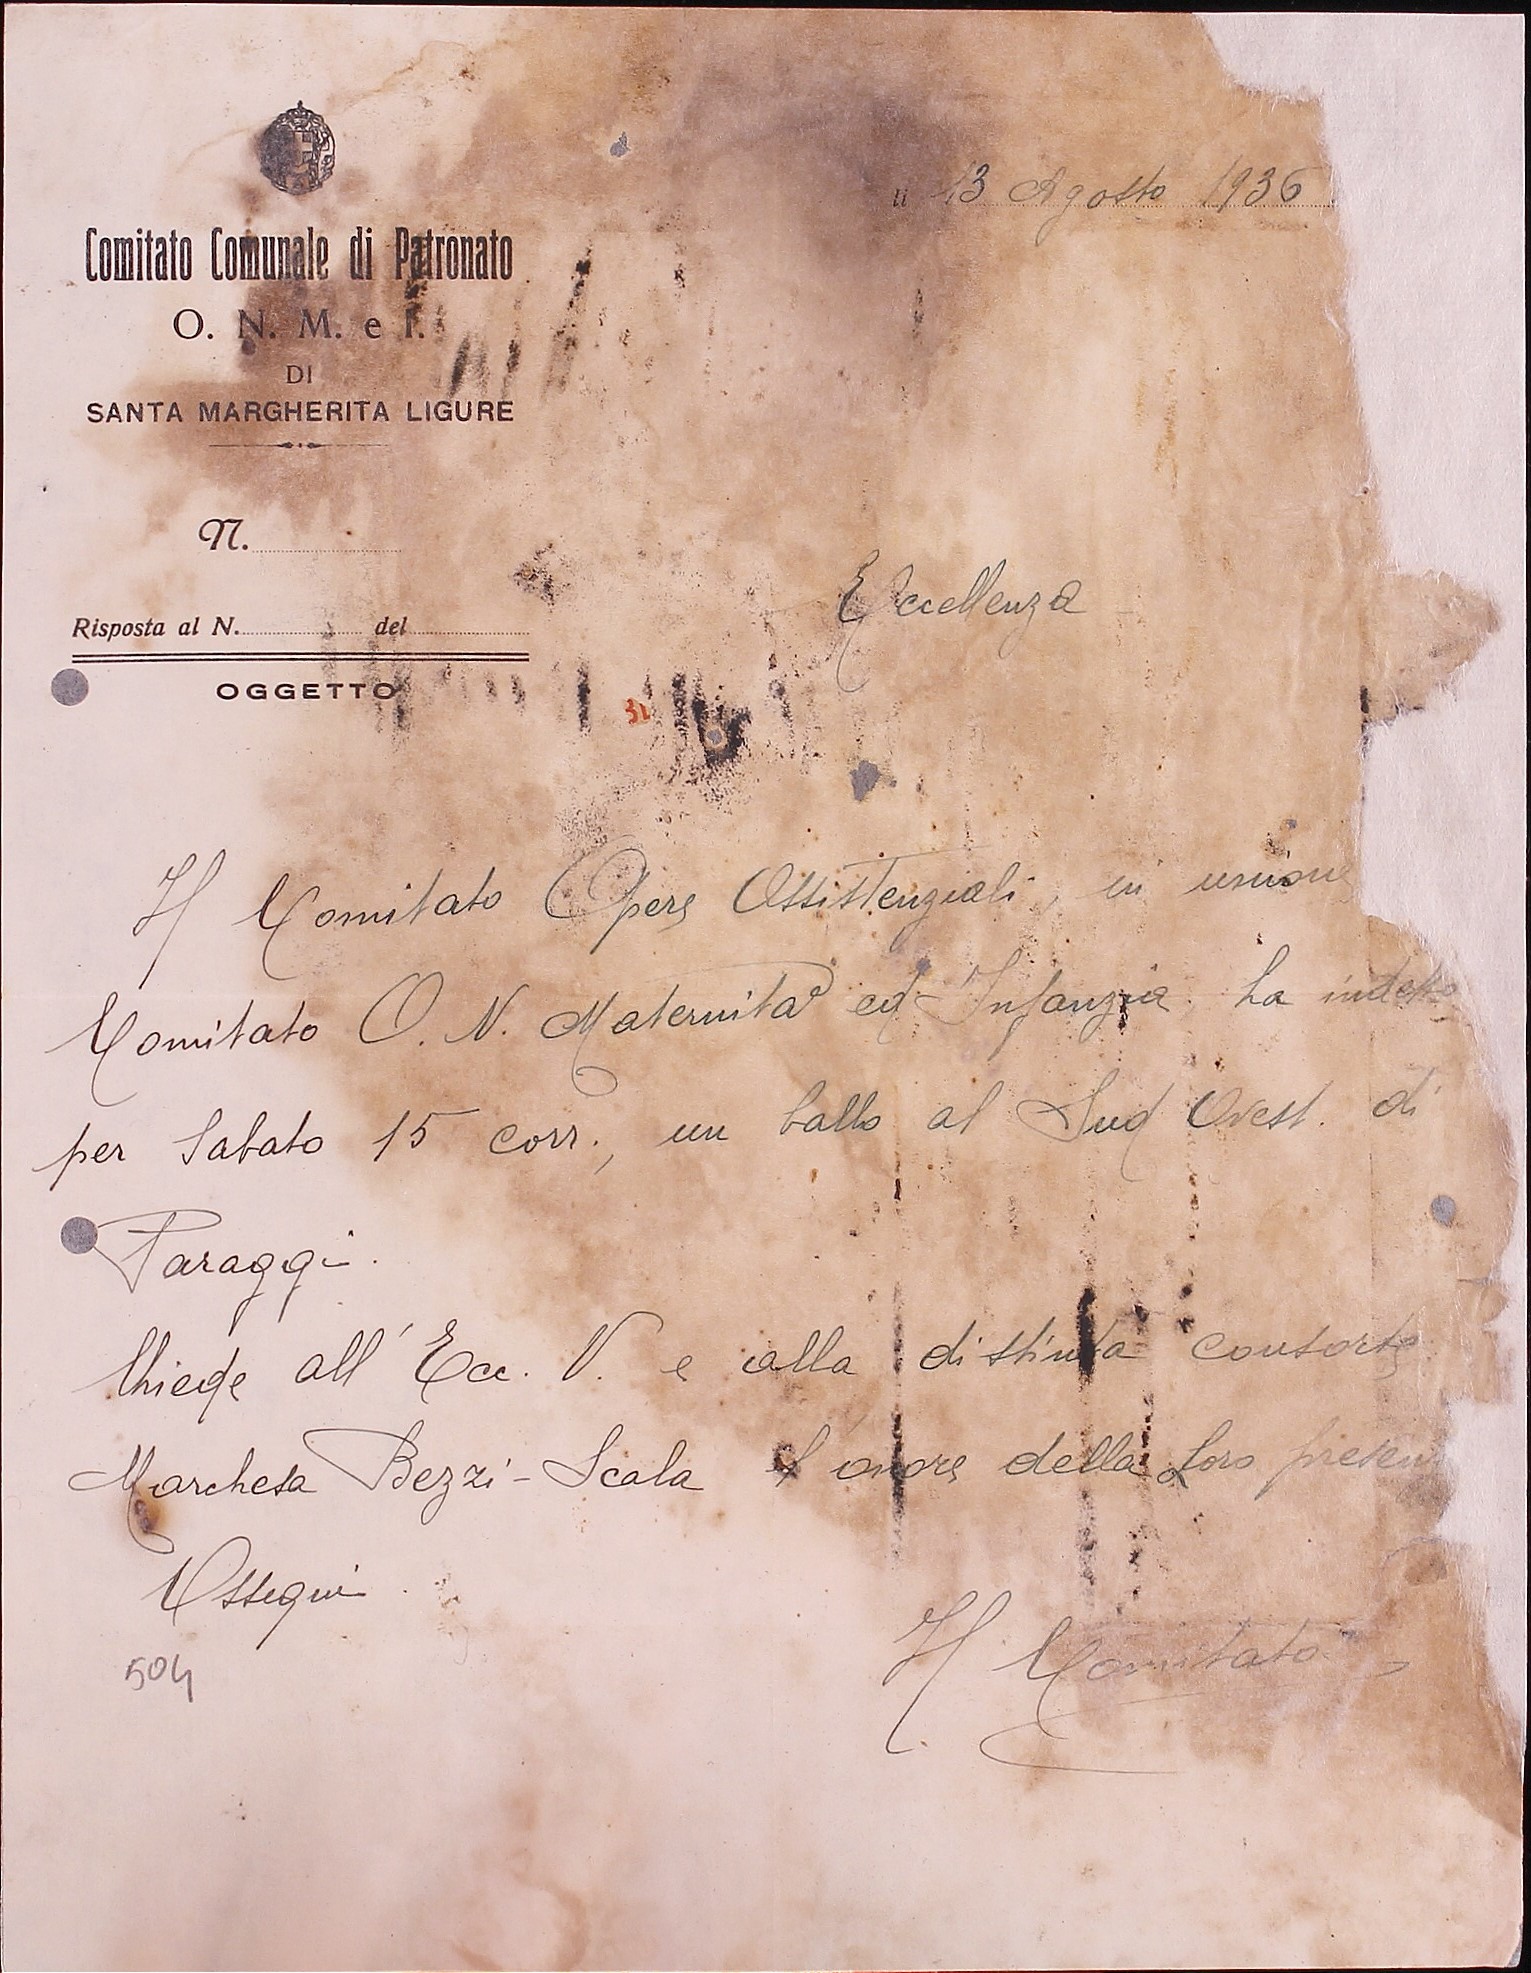 li 13 Agosto 1936
Comitato Comunale di Patronato
O. N. M. e I.
DI
SANTA MARGHERITA LIGURE
N.
Eccellenza
Risposta al N. del
OGGETTO
31
Il Comitato Opere Assistenziali, in unione
Comitato O. N. Maternità ed Infanzia, ha indetto
per Sabato 15 corr., un ballo al Sud Ovest. di
Paraggi.
Chiede all' Ecc. V. e alla distinta consorte
Marchesa Bezzi-Scala l'onore della Loro presen
Ossequi.
Il Comitato
504